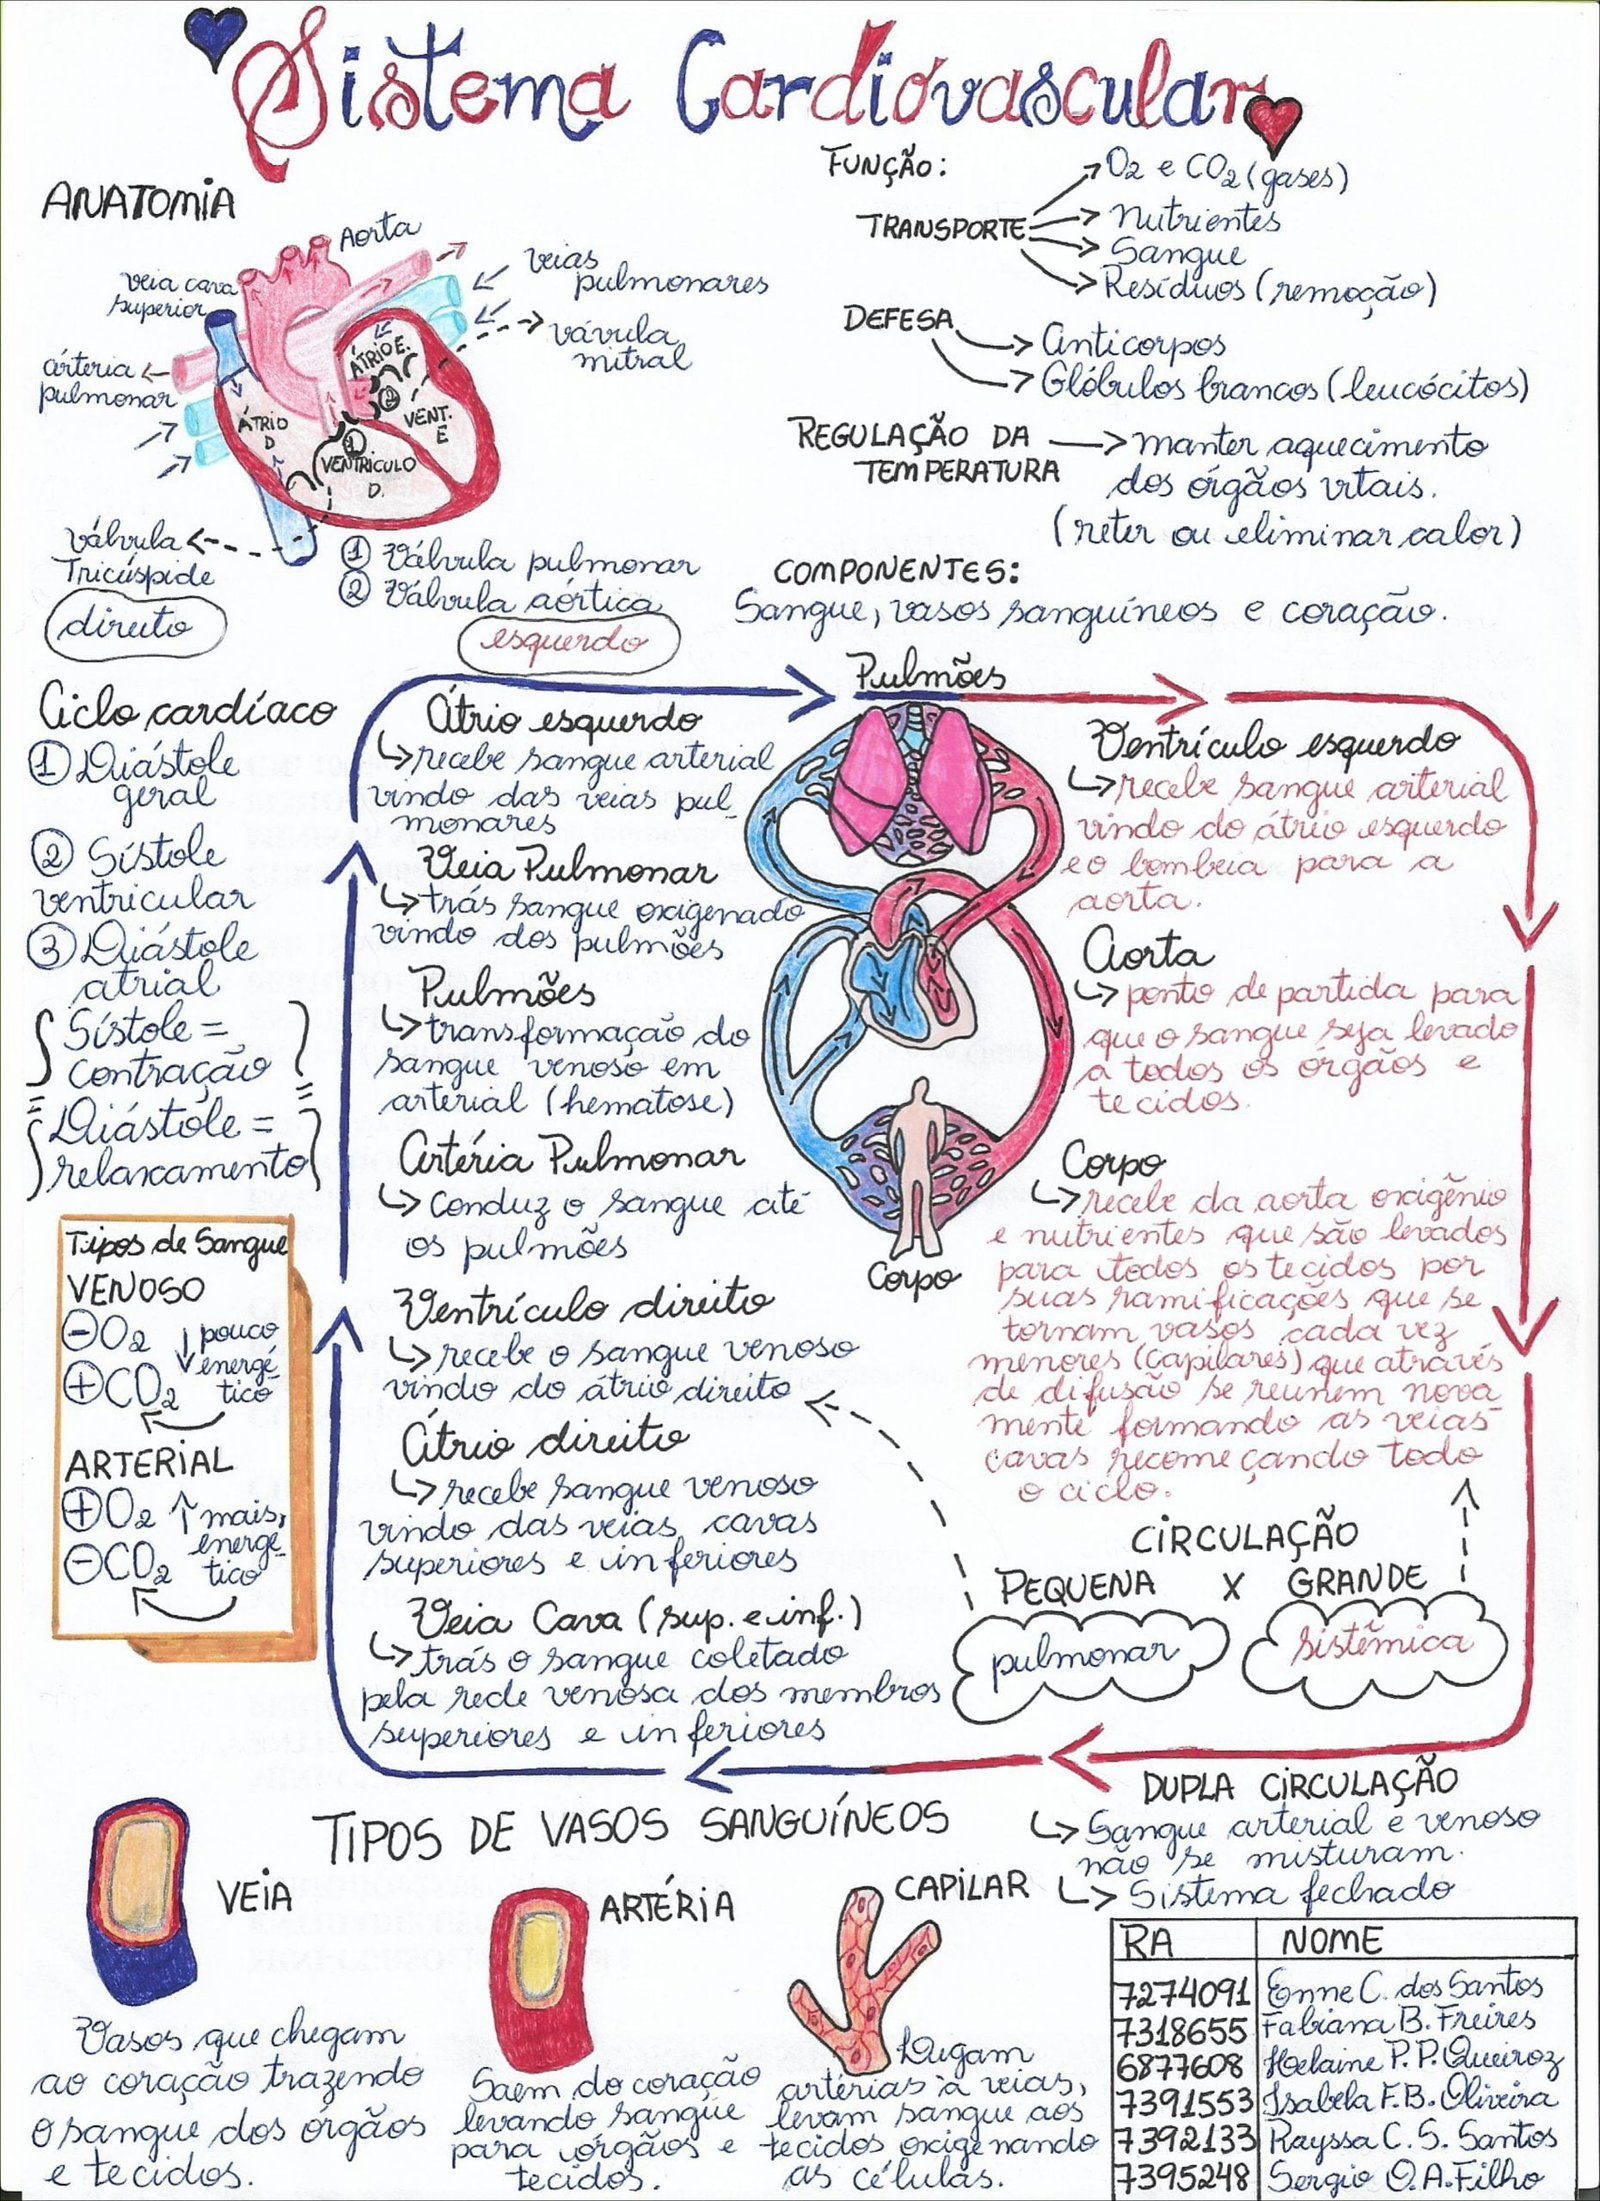 Sistema Cardiovascular
ANATOMIA
Aorta
veia cava
superior
veias
pulmonares
vávula
mitral
artéria
pulmonar
ÁTRIO E.
ÁTRIO
D
VENT.
E
VENTRICULO
D.
2
1
válvula
Tricúspide
1 Válvula pulmonar
2 Válvula aórtica
direito
esquerdo
FUNÇÃO:
TRANSPORTE
O2 e CO2 (gases)
Nutrientes
Sangue
Resíduos (remoção)
DEFESA
Anticorpos
Glóbulos brancos (leucócitos)
REGULAÇÃO DA
TEMPERATURA
manter aquecimento
dos órgãos vitais.
(reter ou eliminar calor)
COMPONENTES:
Sangue, vasos sanguíneos e coração.
Ciclo cardíaco
1 Diástole
geral
2 Sístole
ventricular
3 Diástole
atrial
Sístole =
contração
Diástole =
relaxamento
Tipos de Sangue
VENOSO
-O2 ↓ pouco
energé-
tico
+CO2
ARTERIAL
+O2 ↑ mais
energé-
tico
-CO2
Átrio esquerdo
recebe sangue arterial
vindo das veias pul-
monares
Veia Pulmonar
trás sangue oxigenado
vindo dos pulmões
Pulmões
transformação do
sangue venoso em
arterial (hematose)
Artéria Pulmonar
Conduz o sangue até
os pulmões
Ventrículo direito
recebe o sangue venoso
vindo do átrio direito
Átrio direito
recebe sangue venoso
vindo das veias cavas
superiores e inferiores
Veia Cava (sup. e inf.)
trás o sangue coletado
pela rede venosa dos membros
superiores e inferiores
Pulmões
Corpo
Ventrículo esquerdo
recebe sangue arterial
vindo do átrio esquerdo
e o bombeia para a
aorta.
Aorta
ponto de partida para
que o sangue seja levado
a todos os órgãos e
tecidos.
Corpo
recebe da aorta oxigênio
e nutrientes que são levados
para todos os tecidos por
suas ramificações que se
tornam vasos cada vez
menores (capilares) que através
de difusão se reunem nova
mente formando as veias
cavas recomeçando todo
o ciclo.
CIRCULAÇÃO
PEQUENA X GRANDE
pulmonar
sistêmica
DUPLA CIRCULAÇÃO
Sangue arterial e venoso
não se misturam.
Sistema fechado
TIPOS DE VASOS SANGUÍNEOS
VEIA
Vasos que chegam
ao coração trazendo
o sangue dos órgãos
e tecidos.
ARTÉRIA
Saem do coração
levando sangue
para órgãos e
tecidos.
CAPILAR
Lugam
artérias à veias,
levam sangue aos
tecidos oxigenando
as células.
RA NOME
7274091 Enne C. dos Santos
7318655 Fabiana B. Freires
6877608 Helaine P. P. Queiroz
7391553 Isabela F.B. Oliveira
7392133 Rayssa C. S. Santos
7395248 Sergio O. A. Filho